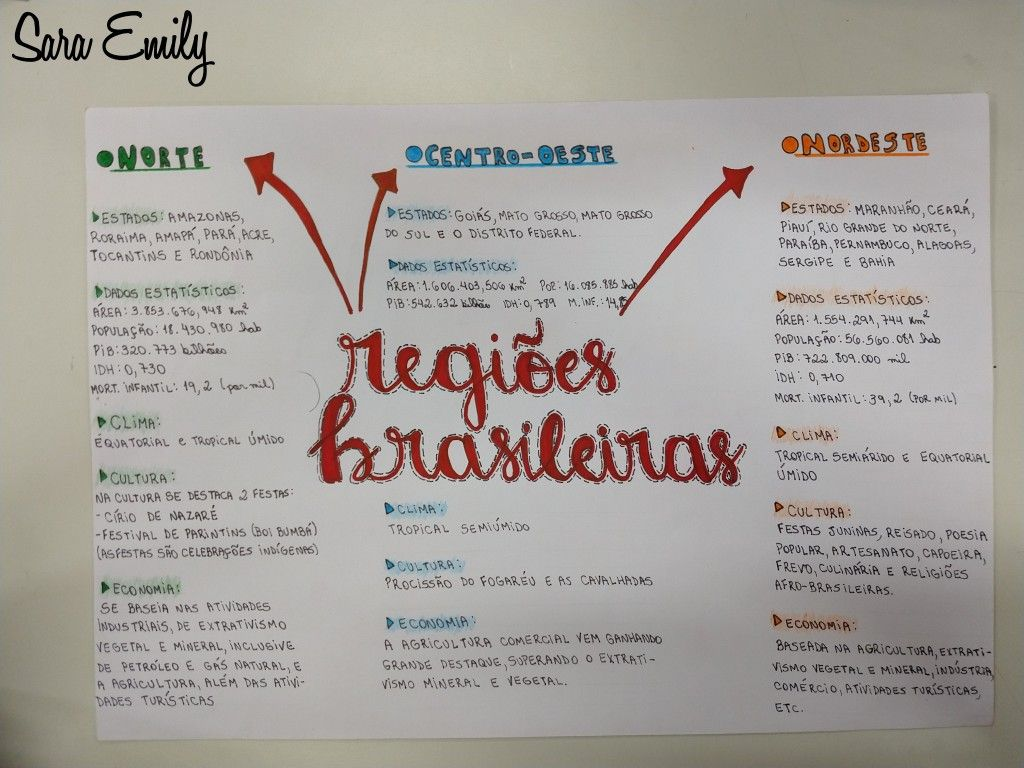 Sara Emily
NORTE
ESTADOS: AMAZONAS,
RORAIMA, AMAPÁ, PARÁ, ACRE,
TOCANTINS E RONDÔNIA
DADOS ESTATÍSTICOS:
ÁREA: 3.853.676,948 Km²
POPULAÇÃO: 18.430.980 hab
PIB: 320.773 bilhões
IDH: 0,730
MORT. INFANTIL: 19,2 (por mil)
CLIMA:
EQUATORIAL E TROPICAL ÚMIDO
CULTURA:
NA CULTURA SE DESTACA 2 FESTAS:
- CÍRIO DE NAZARÉ
- FESTIVAL DE PARINTINS (BOI BUMBÁ)
(AS FESTAS SÃO CELEBRAÇÕES INDÍGENAS)
ECONOMIA:
SE BASEIA NAS ATIVIDADES
INDUSTRIAIS, DE EXTRATIVISMO
VEGETAL E MINERAL, INCLUSIVE
DE PETRÓLEO E GÁS NATURAL, E
A AGRICULTURA, ALÉM DAS ATIVI-
DADES TURÍSTICAS
CENTRO-OESTE
ESTADOS: GOIÁS, MATO GROSSO, MATO GROSSO
DO SUL E O DISTRITO FEDERAL.
DADOS ESTATÍSTICOS:
ÁREA: 1.606.403,506 Km² POP: 16.085.885 hab
PIB: 542.632 bilhões IDH: 0,789 M.INF.:
regiões
brasileiras
CLIMA:
TROPICAL SEMIÚMIDO
CULTURA:
PROCISSÃO DO FOGARÉU E AS CAVALHADAS
ECONOMIA:
A AGRICULTURA COMERCIAL VEM GANHANDO
GRANDE DESTAQUE, SUPERANDO O EXTRATI-
VISMO MINERAL E VEGETAL.
NORDESTE
ESTADOS: MARANHÃO, CEARÁ,
PIAUÍ, RIO GRANDE DO NORTE,
PARAÍBA, PERNAMBUCO, ALAGOAS,
SERGIPE E BAHIA
DADOS ESTATÍSTICOS:
ÁREA: 1.554.291,744 Km²
POPULAÇÃO: 56.560.081 hab
PIB: 722.809.000 mil
IDH: 0,710
MORT. INFANTIL: 39,2 (POR MIL)
CLIMA:
TROPICAL SEMIÁRIDO E EQUATORIAL
ÚMIDO
CULTURA:
FESTAS JUNINAS, REISADO, POESIA
POPULAR, ARTESANATO, CAPOEIRA,
FREVO, CULINÁRIA E RELIGIÕES
AFRO-BRASILEIRAS.
ECONOMIA:
BASEADA NA AGRICULTURA, EXTRATI-
VISMO VEGETAL E MINERAL, INDÚSTRIA,
COMÉRCIO, ATIVIDADES TURÍSTICAS,
ETC.